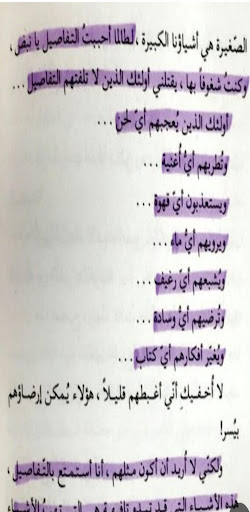 الصّغيرة هي أشياؤنا الكبيرة ، لطالما أحببتُ التفاصيل يا نبض ،
وكنتُ شغوفاً بها ، يقتلني أولئك الذين لا تلفتهم التفاصيل ...
أولئك الذين يُعجبهم أيّ لحن ...
وتُطربهم أيُّ أُغنية ...
ويستعذبون أيّ قهوة ...
ويرويهم أيُّ ماء ...
ويُشبعهم أيّ رغيف ...
وتُرضيهم أيُّ وسادة ...
ويُغيّر أفكارهم أيّ كتاب ...
لا أُخفيكِ أنّي أغبطهم قليلاً ، هؤلاء يُمكن إرضاؤهم
بيُسر !
ولكنّي لا أُريد أن أكون مثلهم ، أنا أستمتع بالتّفاصيل ،
هذه الأشياء التي قد تبدو تافهة هي التي